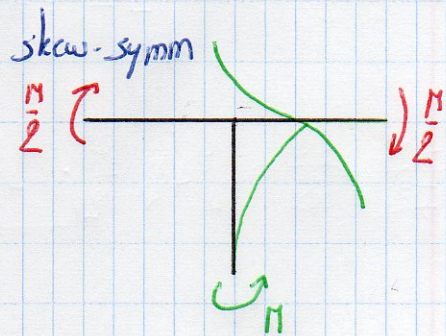 skew-symm
M/2
M/2
M